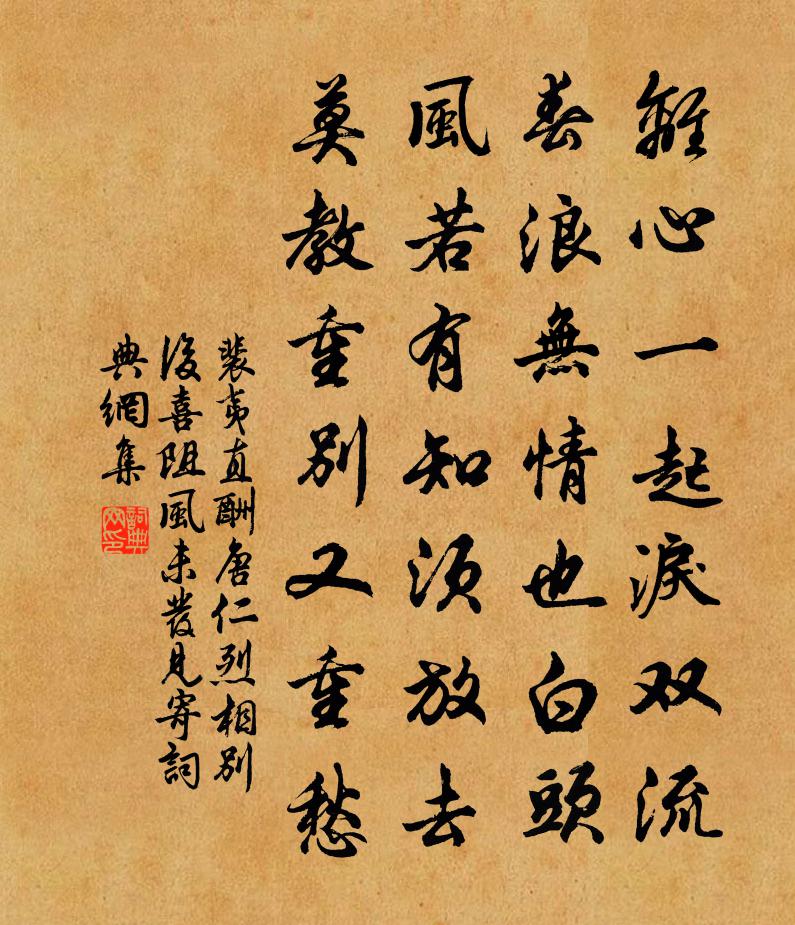 離心一起淚双流
春浪無情也白頭
風若有知須放去
莫教重別又重愁
裴夷直酬唐仁烈相別
後喜阻風未發見寄詞
典網集
詞典網印